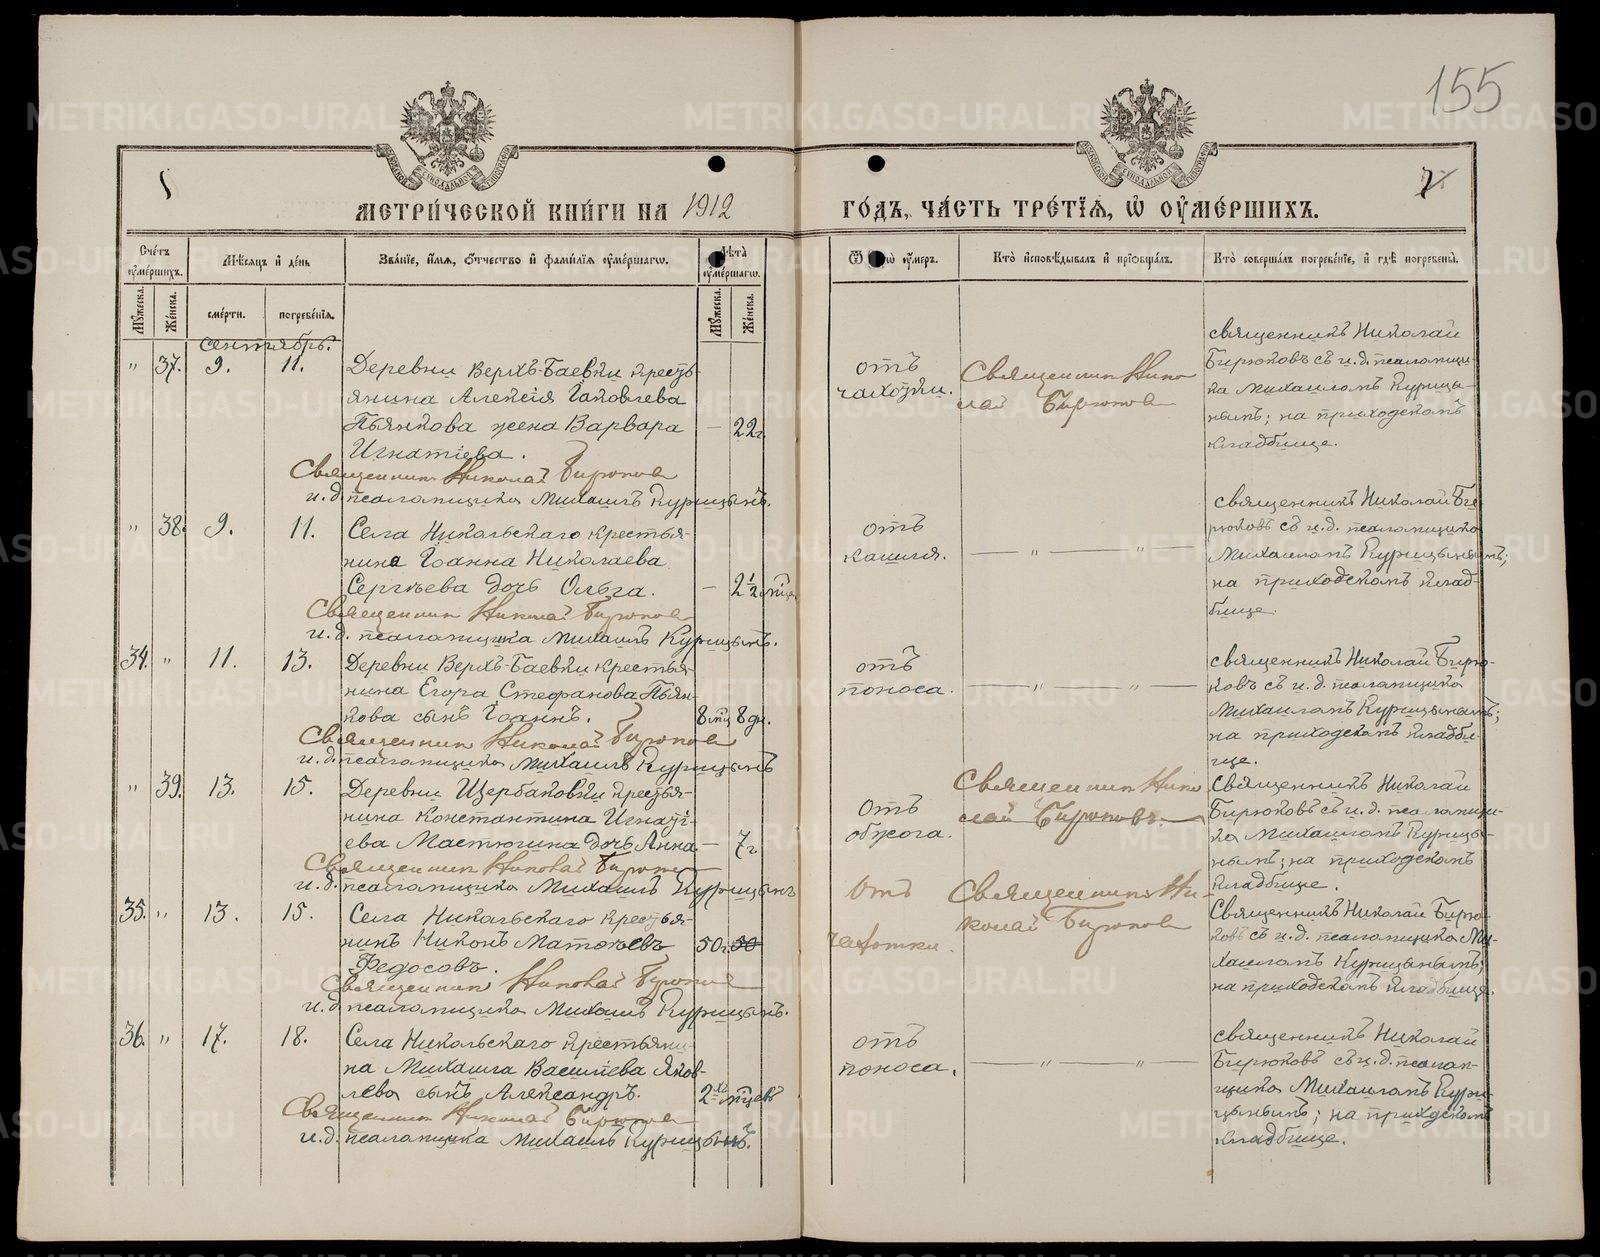 155
МЕТРИ́ЧЕСКОЙ КНИ́ГИ НА 1912
ГО́ДЪ, ЧА́СТЬ ТРЕ́ТІѦ, Ѡ҆ ОУ҆МЕ́РШИХЪ.
Сче́тъ оу҆ме́ршихъ.
Мѣ́сѧцъ и҆ де́нь
Зва́нїе, и҆́мѧ, ѻ҆́тчество и҆ фами́лїѧ оу҆ме́ршагѡ.
Лѣ́та оу҆ме́ршагѡ.
оу҆́меръ.
Кто̀ и҆сповѣ́дывалъ и҆ прїѡбща́лъ.
Кто̀ соверша́лъ погребе́нїе, и҆ гдѣ̀ погребены̀.
Мꙋ́жеска.
Же́нска.
сме́рти.
погребе́нїѧ.
Мꙋ́жеска.
Же́нска.
сентябрь.
" 37. 9. 11. Деревни Верхъ-Баевки кресть-
янина Алексія Іаковлева
Пьянкова жена Варвара — 22 г.
Игнатіева.
Священник Николай Бирюков
и.д. псаломщика Михаилъ Курицынъ.
отъ
чахотки.
Священник Нико
лай Бирюков
священникъ Николай
Бирюковъ съ и.д. псаломщи-
ка Михаиломъ Курицы-
нымъ; на приходскомъ
кладбище.
" 38. 9. 11. Села Никольскаго крестья-
нина Іоанна Николаева
Сергѣева дочь Ольга. — 2½ мѣц.
Священник Николай Бирюков
и.д. псаломщика Михаилъ Курицынъ.
отъ
кашля.
— " — " —
священникъ Николай Би-
рюковъ съ и.д. псаломщика
Михаиломъ Курицынымъ;
на приходскомъ клад-
бище.
34. " 11. 13. Деревни Верхъ-Баевки крестья-
нина Егора Стефанова Пьян-
кова сынъ Іоаннъ. 8 мѣц 8 дн.
Священник Николай Бирюков
и.д. псаломщика Михаилъ Курицынъ
отъ
поноса.
— " — " —
священникъ Николай Бирю-
ковъ съ и.д. псаломщика
Михаиломъ Курицынымъ;
на приходскомъ кладби-
ще.
" 39. 13. 15. Деревни Щербаковки крестья-
нина Константина Игнаті-
ева Мастюгина дочь Анна — 7 г.
Священник Николай Бирюков
и.д. псаломщика Михаилъ Курицынъ
Отъ
обжога.
Священник Нико
лай Бирюковъ.
Священникъ Николай
Бирюковъ съ и.д. псаломщи-
ка Михаиломъ Курицы-
нымъ; на приходскомъ
кладбище.
35. " 13. 15. Села Никольскаго кресть[я]-
нинъ Никонъ Матѳеевъ 50 г. 50
Федосовъ.
Священник Николай Бирюков
и.д. псаломщика Михаилъ Курицынъ.
Отъ
чахотки.
Священник Ни-
колай Бирюков
Священникъ Николай Бирю-
ковъ съ и.д. псаломщика Ми-
хаиломъ Курицынымъ;
на приходскомъ кладбище.
36. " 17. 18. Села Никольскаго крестьяни-
на Михаила Васильева Яков-
лева сынъ Александръ. 2-хъ мѣцевъ
Священник Николай Бирюков
и.д. псаломщика Михаилъ Курицынъ.
отъ
поноса.
— " — " —
священникъ Николай
Бирюковъ съ и.д. псалом-
щика Михаиломъ Кури-
цынымъ; на приходскомъ
кладбище.
METRIKI.GASO-URAL.RU